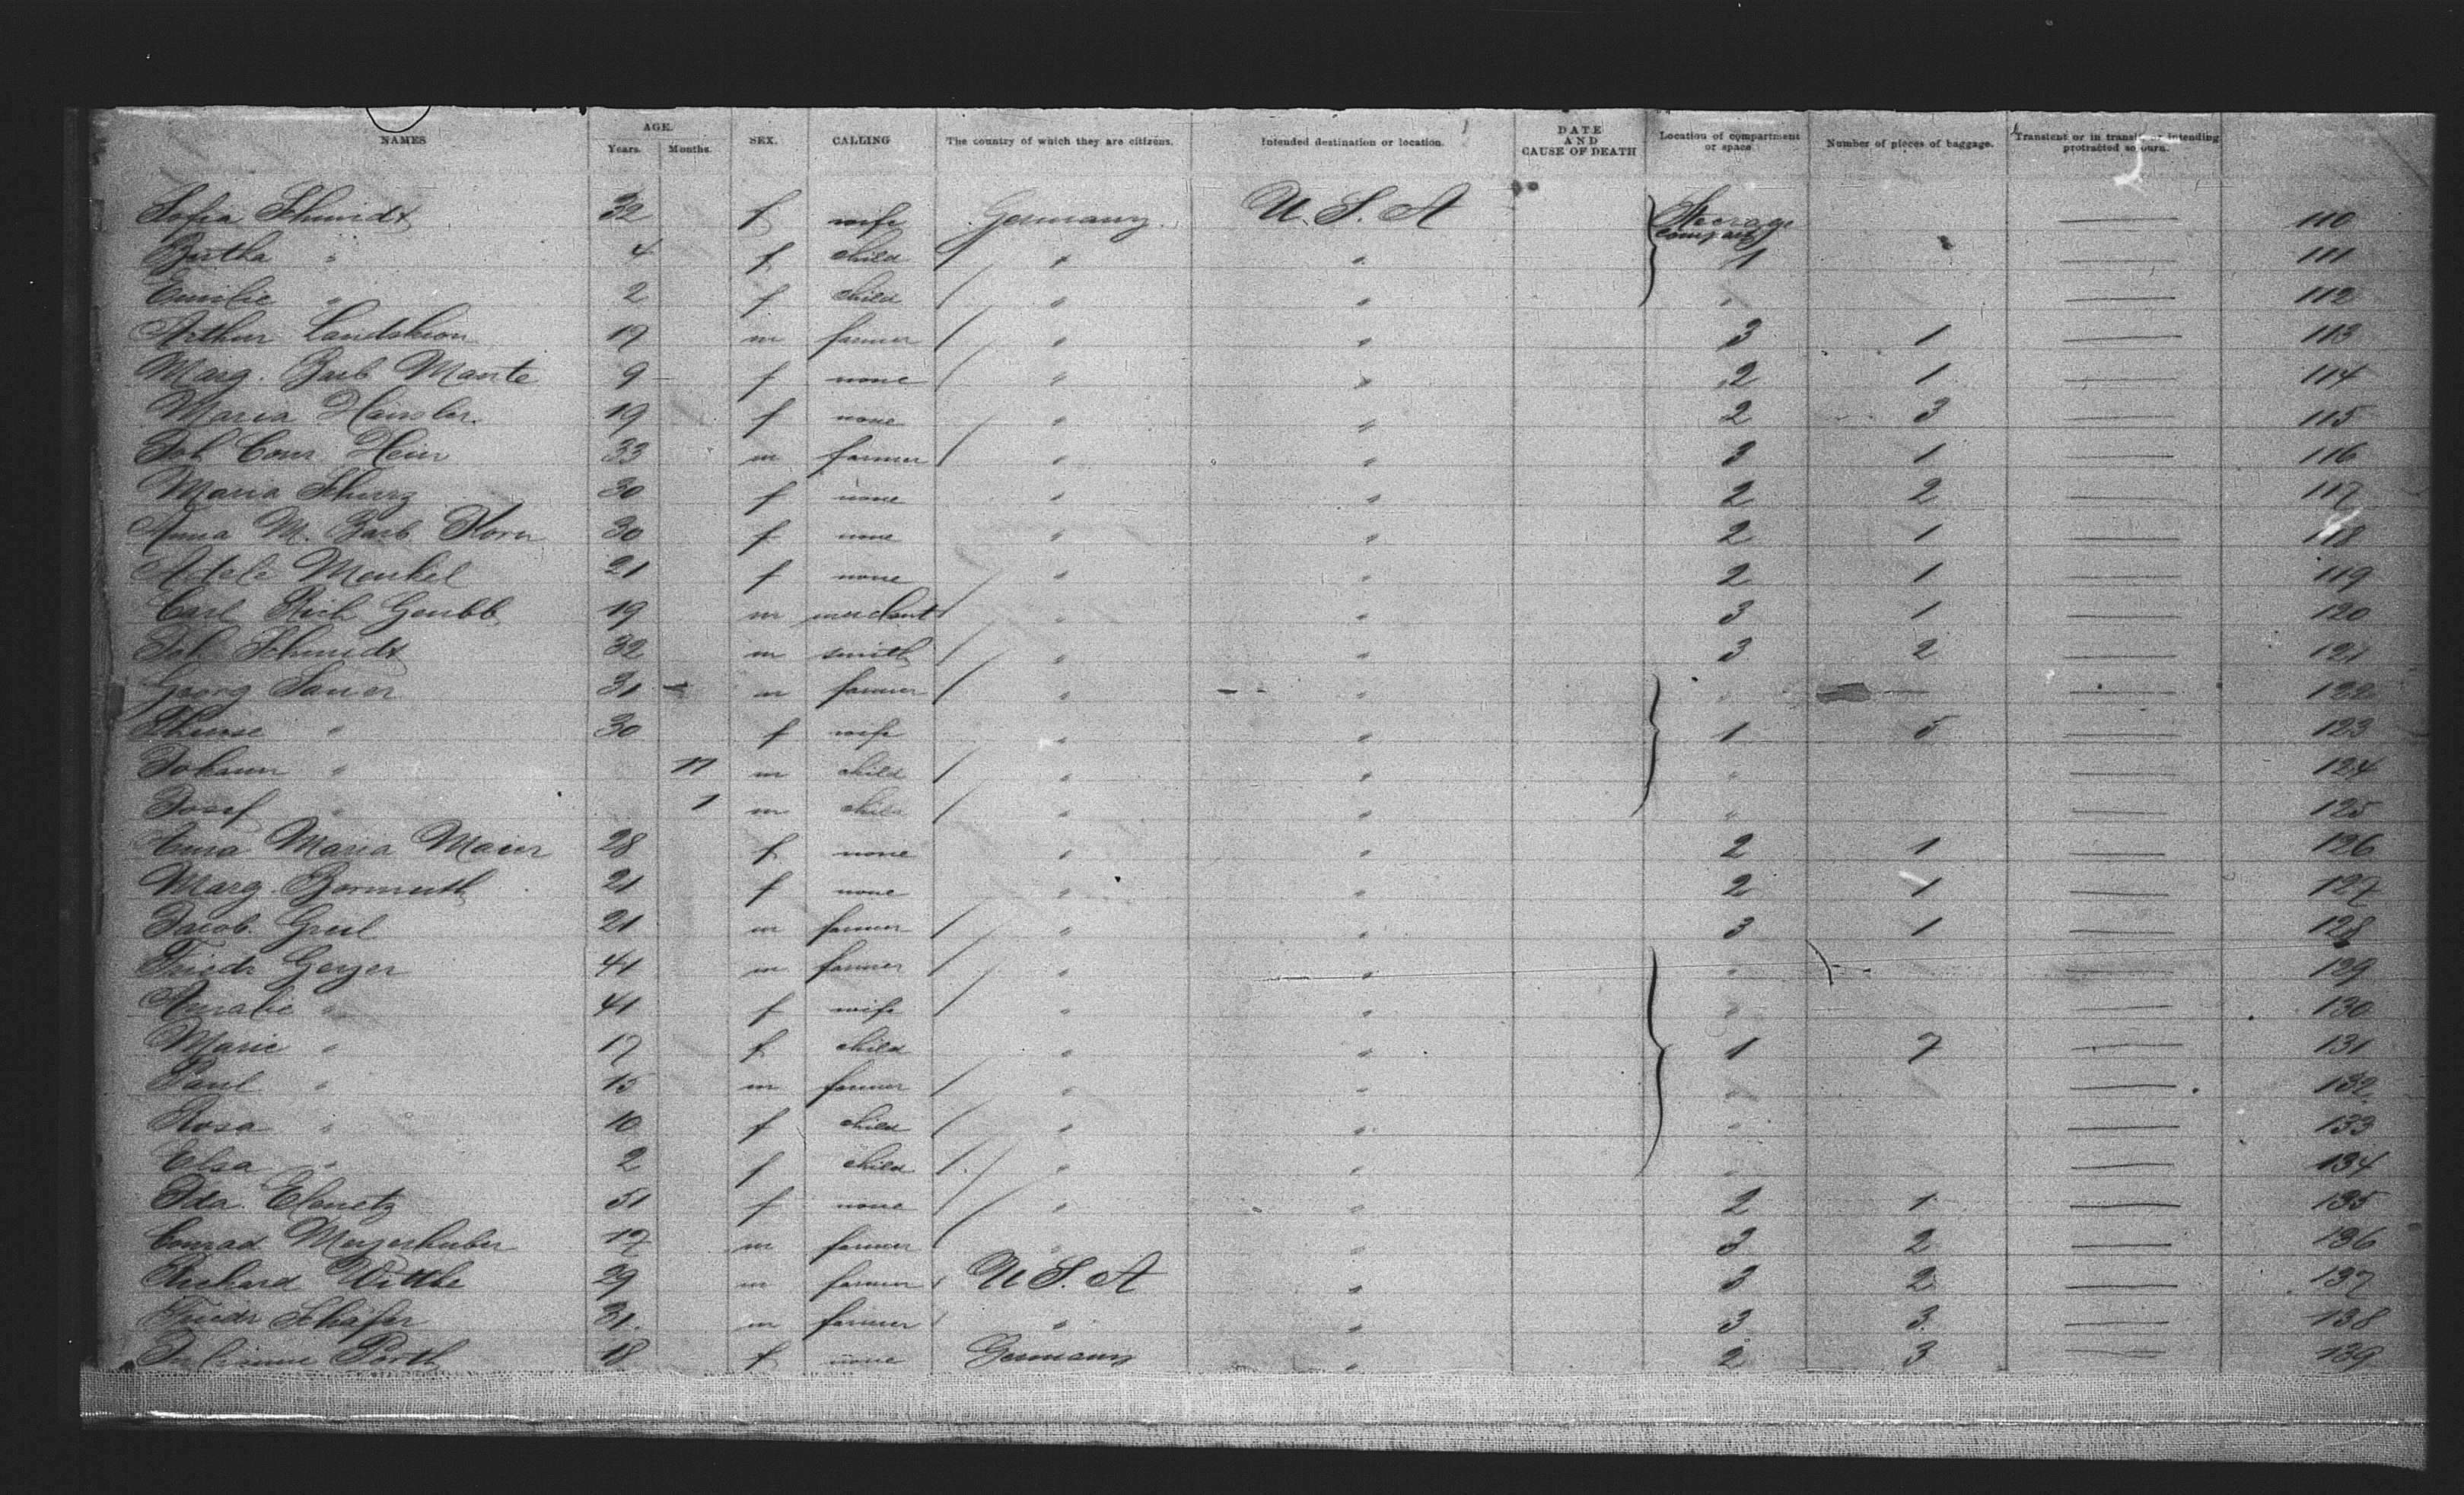 NAMES AGE. Years. Months. SEX. CALLING The country of which they are citizens. Intended destination or location. DATE AND CAUSE OF DEATH Location of compartment or space Number of pieces of baggage. Transient or in transit or intending protracted sojourn.
Sofia Schmidt 32 f wife Germany U. S. A Steerage compart 1 — 110
Bertha " 4 f child " " — 111
Emilie " 2 f child " " " — 112
Arthur Landskron 17 m farmer " " 3 1 — 113
Marg. Barb Mante 9 f none " " 2 1 — 114
Maria Häusler 19 f none " " 2 3 — 115
Joh Conr Heim 33 m farmer " " 3 1 — 116
Maria Schurz 30 f none " " 2 2 — 117
Anna M. Barb Korn 30 f none " " 2 1 — 118
Adele Menkel 21 f none " " 2 1 — 119
Carl Rich 19 m merchant " " 3 1 — 120
Joh Schmidt 32 m smith " " 3 2 — 121
Georg Sauer 31 m farmer " " " — 122
Therese " 30 f wife " " 1 5 — 123
Johann " 11 m child " " " — 124
Josef " 1 m child " " " — 125
Anna Maria Maier 28 f none " " 2 1 — 126
Marg. Bormuth 21 f none " " 2 1 — 127
Jacob Greil 21 m farmer " " 3 1 — 128
Friedr Geyer 41 m farmer " " " — 129
Amalie " 41 f wife " " " — 130
Marie " 17 f child " " 1 7 — 131
Paul " 15 m farmer " " " — 132
Rosa " 10 f child " " " — 133
Elsa " 2 f child " " " — 134
Ida 51 f none " " 2 1 — 135
Conrad Meyerhuber 17 m farmer " " 3 2 — 136
Richard Witthe 29 m farmer U. S. A " 3 2 — 137
Friedr Schäfer 31 m farmer " " 3 3 — 138
Porth 18 f none Germany " 2 3 — 139